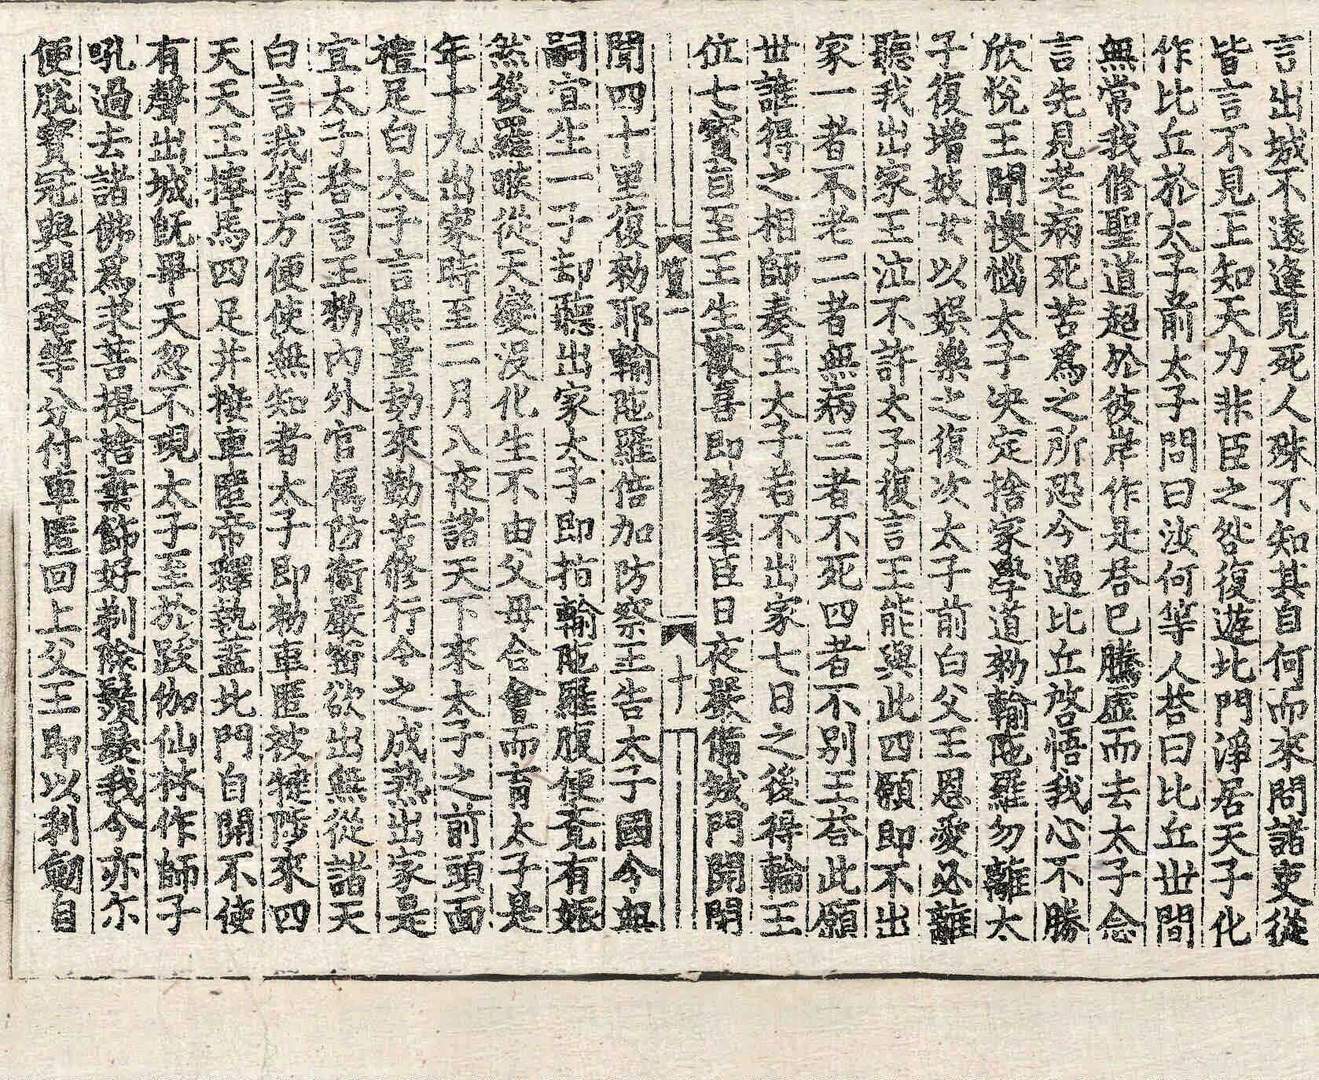 言出城不遠逢見死人殊不知其自何而來問諸吏從
皆言不見王知天力非臣之咎復遊北門淨居天子化
作比丘於太子前太子問曰汝何等人荅曰比丘世間
無常我修聖道超於彼岸作是荅已騰虛而去太子念
言先見老病死苦爲之所恐今遇比丘啓悟我心不勝
欣悅王聞懊惱太子决定捨家學道勑輸陁羅勿離太
子復增妓女以娛樂之復次太子前白父王恩愛必離
聽我出家王泣不許太子復言王能與此四願即不出
家一者不老二者無病三者不死四者不別王荅此願
世誰得之相師奏王太子若不出家七日之後得輪王
位七寶自至王生歡喜即勑羣臣日夜嚴備城門開閉
寶一
十
聞四十里復勑耶輸陁羅倍加防察王告太子國今無
嗣宜生一子却聽出家太子即指輸陁羅腹便覺有娠
然後羅睺從天變没化生不由父母合會而育太子是
年十九出家時至二月八夜諸天下來太子之前頭面
禮足白太子言無量劫來勤苦修行今之成熟出家是
宜太子荅言王勑內外官属防衛嚴密欲出無從諸天
白言我等方便使無知者太子即勑車匿被揵陟來四
天天王捧馬四足并接車匿帝釋執盖北門自開不使
有聲出城旣畢天忽不現太子至於跋伽仙林作師子
吼過去諸佛爲求菩提捨棄飾好剃除鬚髮我今亦尒
便脫寶冠與瓔珞等分付車匿回上父王即以利劒自